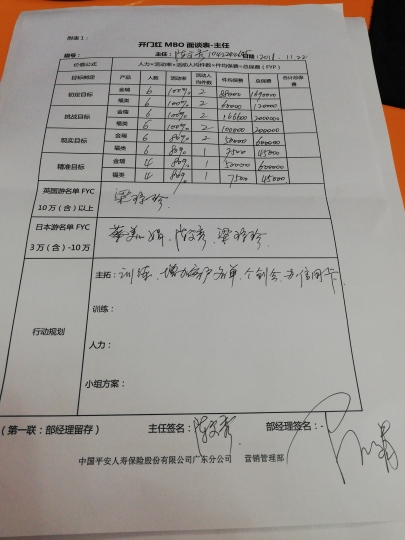 附表1：
开门红 MBO 面谈表-主任
编号： 主任： 日期：2018.11.22
价值公式 人力×活动率×活动人均件数×件均保费=总保费（FYP）
目标制定 产品 人数 活动率 活动人均件数 件均保费 总保费 合计总保费
初定目标 金瑞 6 100% 2
福类 6 100% 2 60000
挑战目标 金瑞 6 100% 2 166600 2000000
福类 6 100% 2 100000
现实目标 金瑞 6 80% 1 50000 600000
福类 6 80% 1 7500 45000
精准目标 金瑞 4 80% 1 50000 600000
福类 4 80% 1 7500 45000
英国游名单 FYC
10 万（含）以上 梁
日本游名单 FYC
3 万（含）-10万
行动规划
主拓：训练、增加客户名单、个创会、办信用卡
训练：
人力：
小组方案：
（第一联：部经理留存） 主任签名： 部经理签名：
中国平安人寿保险股份有限公司广东分公司 营销管理部